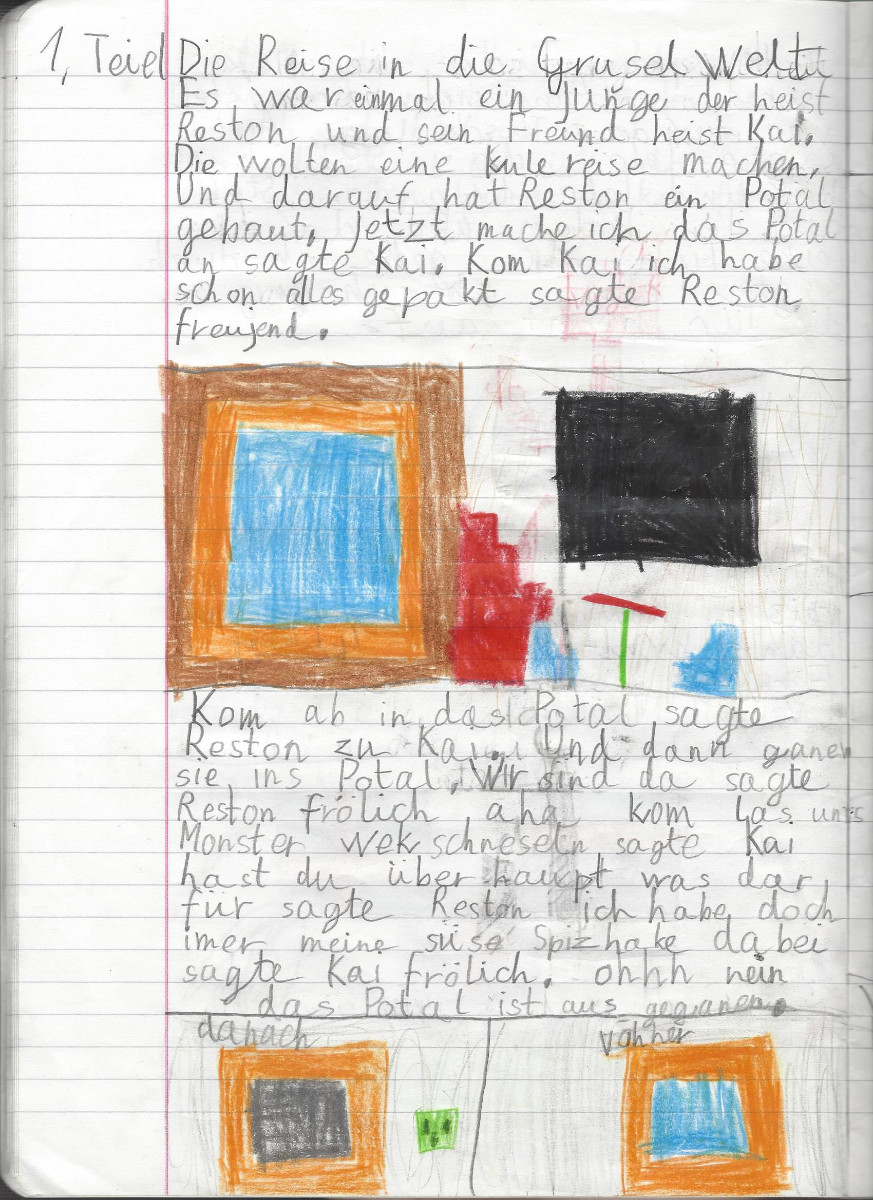 1, Teiel Die Reise in die Grusel Welt
Es war einmal ein Junge der heist
Reston und sein Freund heist Kai.
Die wolten eine kule reise machen.
Und darauf hat Reston ein Potal
gebaut. Jetzt mache ich das Potal
an sagte Kai. Kom Kai ich habe
schon alles gepakt sagte Reston
freujend.
Kom ab in das Potal sagte
Reston zu Kai. Und dann ganen
sie ins Potal, Wir sind da sagte
Reston frölich aha kom las uns
Monster wek schneseln sagte Kai
hast du überhaupt was dar,
für sagte Reston ich habe doch
imer meine süse Spizhake dabei
sagte Kai frölich. ohhh nein
das Potal ist aus geganen.
danach
vohher